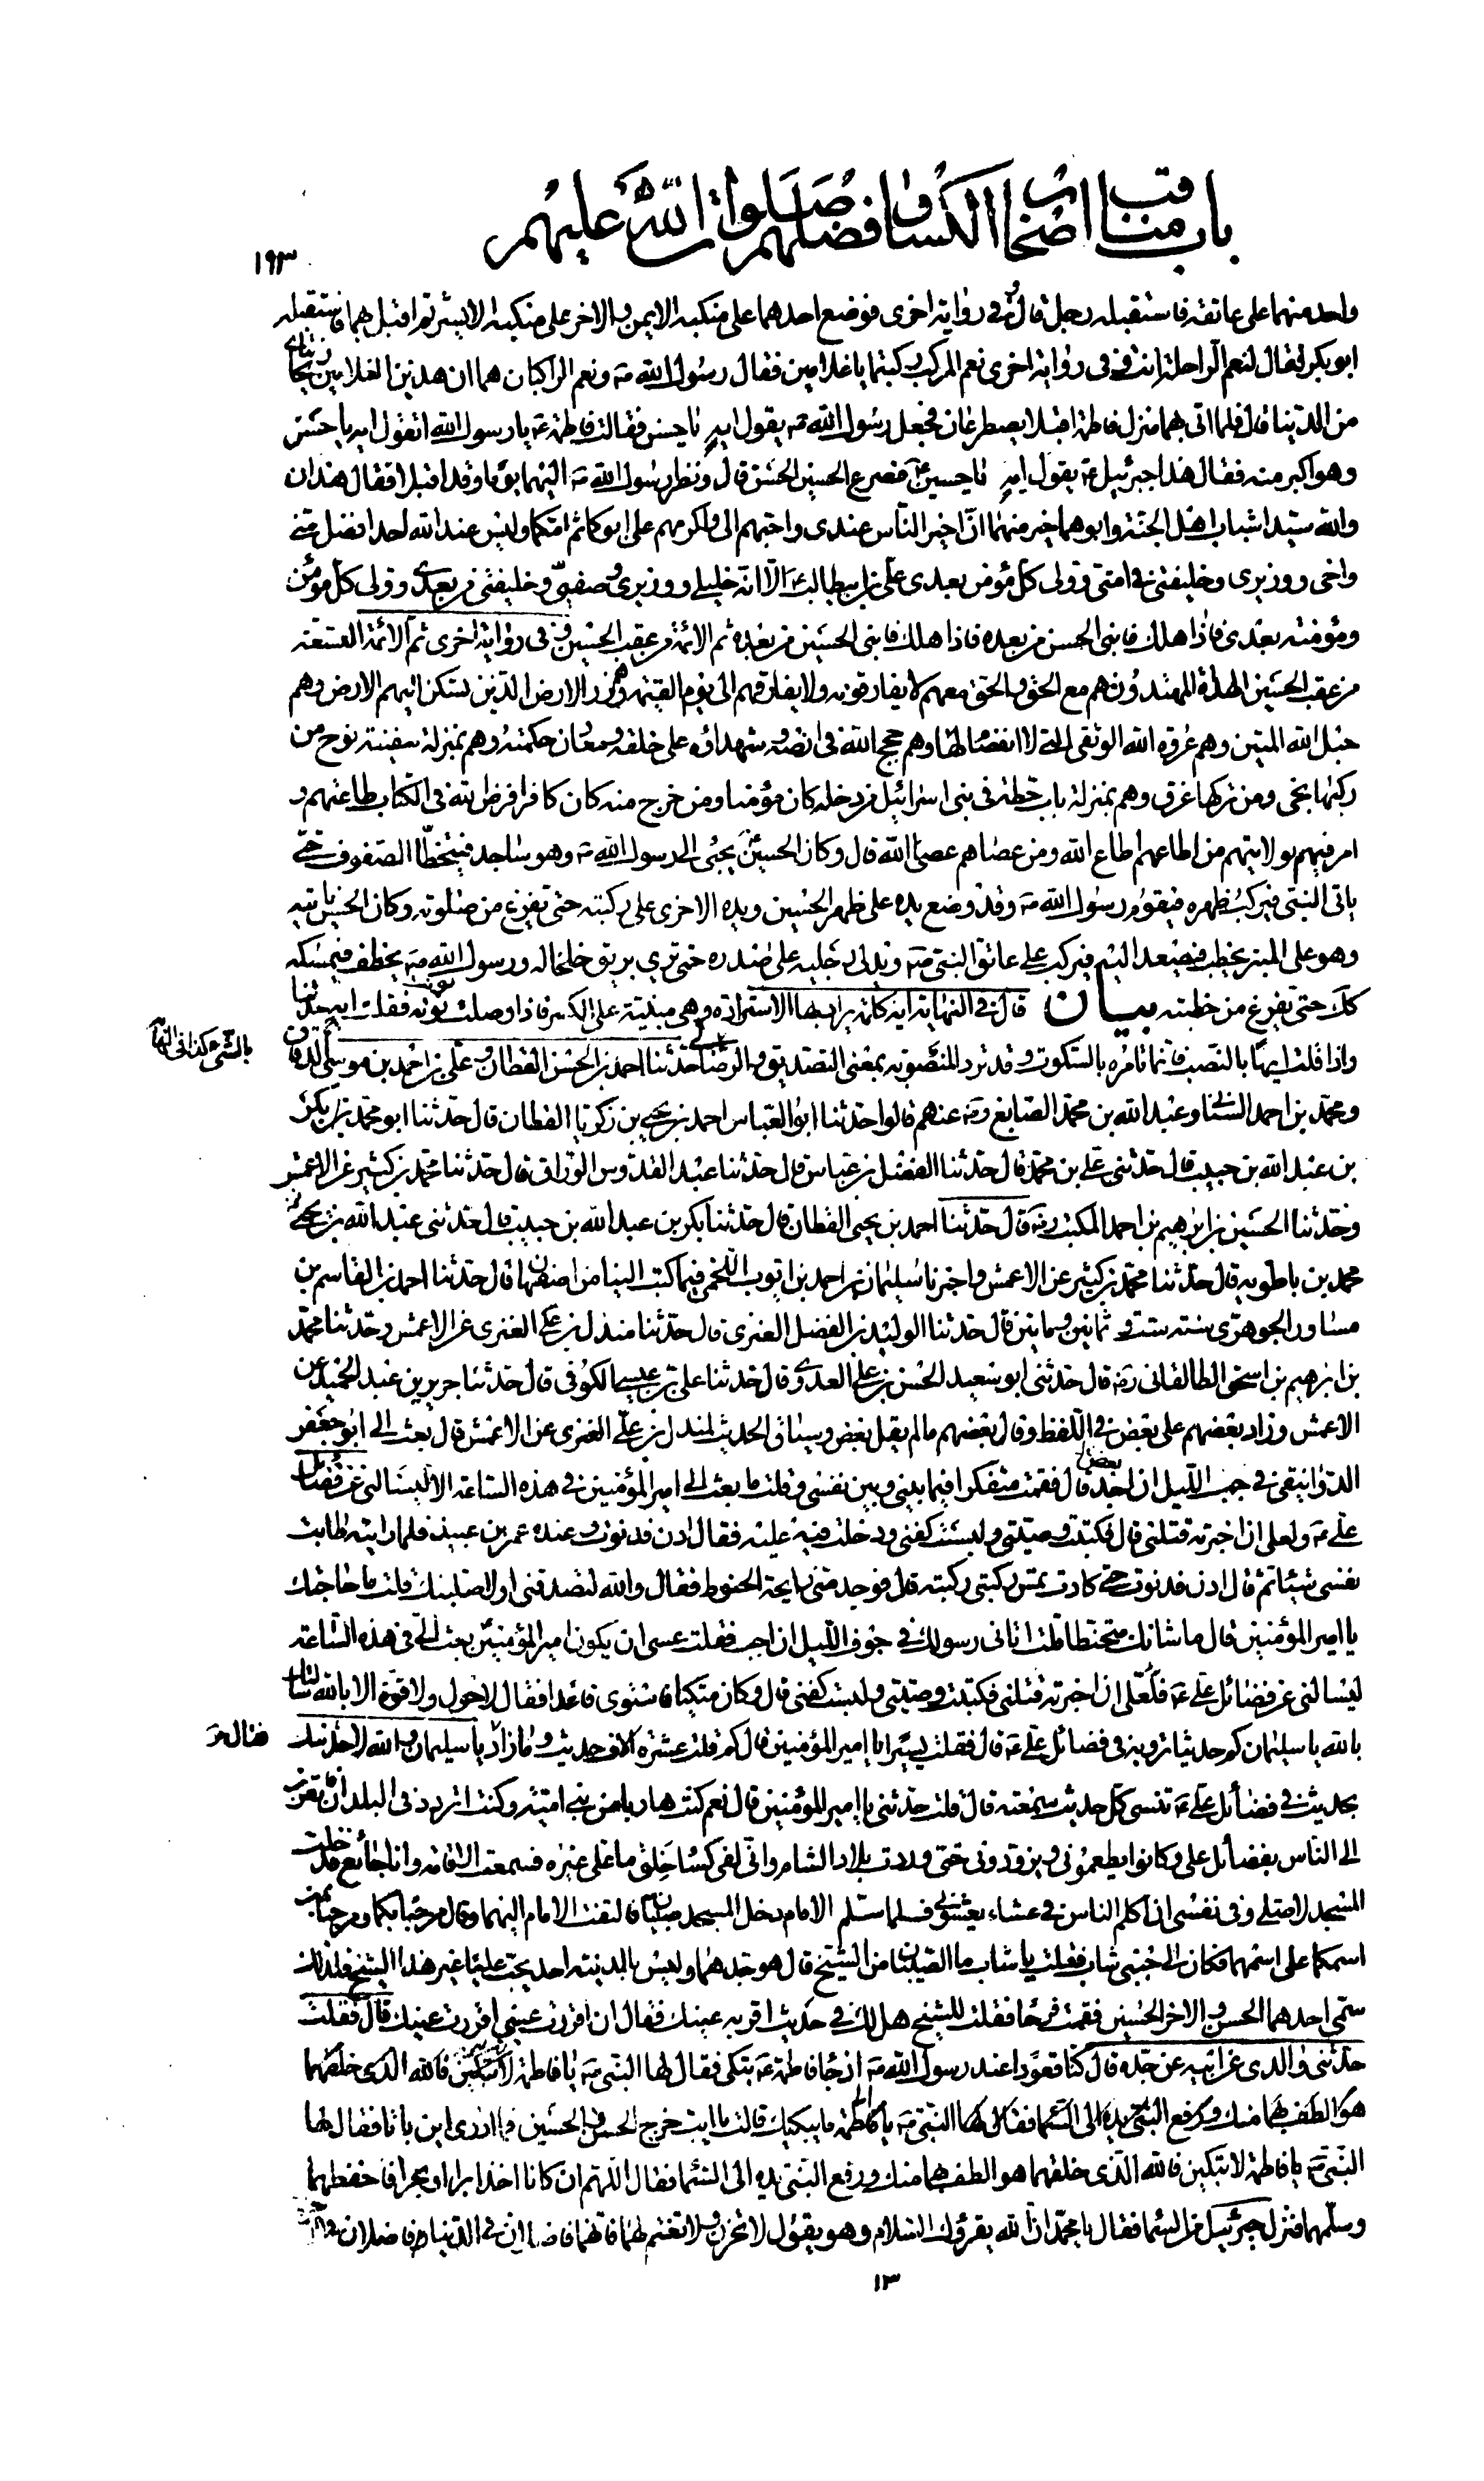 باب مناقب اصحاب الكساء و فضلهم صلوات الله عليهم
١٩٣
واحد منهما على عاتقه فاستقبله رجل قال و في رواية اخرى فوضع احدهما على منكبه الايمن والاخر على منكبه الايسر ثم اقبل بهما فاستقبله
ابو بكر فقال لنعم الراحلة انت و في رواية اخرى نعم المركب ركبتما يا غلامين فقال رسول الله ص ونعم الراكبان هما ان هذين الغلامين ريحانتاي
من الدنيا قال فلما اتى بهما منزل فاطمة اقبلا يصطرعان فجعل رسول الله ص يقول ايه يا حسن فقالت فاطمة ع يا رسول الله اتقول ايه يا حسن
وهو اكبر منه فقال هذا جبرئيل ع يقول ايه يا حسين فصرع الحسين الحسن قال ونظر رسول الله ص اليهما يوما وقد اقبلا فقال هذان
والله سيدا شباب اهل الجنة وابوهما خير منهما ان خير الناس عندي واحبهم الي واكرمهم علي ابوكما ثم امكما وليس عند الله احد افضل مني
واخي ووزيري وخليفتي في امتي وولي كل مؤمن بعدي علي بن ابيطالب ع الا انه خليلي ووزيري وصفيي وخليفتي من بعدي وولي كل مؤمن
ومؤمنة بعدي فاذا هلك فابني الحسن من بعده فاذا هلك فابني الحسين من بعده ثم الائمة من عقب الحسين و في رواية اخرى ثم الائمة التسعة
من عقب الحسين الهداة المهتدون هم مع الحق والحق معهم لا يفارقونه ولا يفارقهم الى يوم القيمة وهم زر الارض الذين تسكن اليهم الارض وهم
حبل الله المتين وهم عروة الله الوثقى التي لا انفصام لها وهم حجج الله في ارضه وشهداؤه على خلقه ومعادن حكمته وهم بمنزلة سفينة نوح من
ركبها نجى ومن تركها غرق وهم بمنزلة باب حطة في بني اسرائيل من دخله كان مؤمنا ومن خرج منه كان كافرا فرض الله في الكتاب طاعتهم و
امر فيهم بولايتهم من اطاعهم اطاع الله ومن عصاهم عصى الله قال وكان الحسين ع يجئ الى رسول الله ص وهو ساجد فيتخطا الصفوف حتى
ياتى النبى فيركب ظهره فيقوم رسول الله ص وقد وضع يده على ظهر الحسين ويده الاخرى على ركبته حتى يفرغ من صلوته وكان الحسن ياتيه
وهو على المنبر يخطب فيصعد اليه فيركب على عاتق النبى ص ويدلى رجليه على صدره حتى ترى بريق خلخاله ورسول الله ص يخطب فيمسكه
كك حتى يفرغ من خطبته بيان قال في النهاية ايه كلمة يراد بها الاستزادة وهى مبنية على الكسر فاذا وصلت نونت فقلت ايه حدثنا
واذا قلت ايها بالنصب فانما تامره بالسكوت وقد ترد المنصوبة بمعنى التصديق والرضا لى حدثنا احمد بن الحسن القطان وعلى بن احمد بن موسى الدقاق
بالشئ كذا في النهاية
ومحمد بن احمد السناني وعبد الله بن محمد الصايغ رض عنهم قالوا حدثنا ابو العباس احمد بن يحيى بن زكريا القطان قال حدثنا ابو محمد بن بكر
بن عبد الله بن حبيب قال حدثنى على بن محمد قال حدثنا الفضل بن عباس قال حدثنا عبد القدوس الوراق قال حدثنا محمد بن كثير عن الاعمش
وحدثنا الحسين بن ابرهيم بن احمد المكتب رض قال حدثنا احمد بن يحيى القطان قال حدثنا بكر بن عبد الله بن حبيب قال حدثنى عبد الله بن يحيى بن
محمد بن باطويه قال حدثنا محمد بن كثير عن الاعمش واخبرنا سليمان بن احمد بن ايوب اللخمى فيما كتب الينا من اصفهان قال حدثنا احمد بن القاسم بن
مساور الجوهرى سنة ست وثمانين ومأتين قال حدثنا الوليد بن الفضل العنزى قال حدثنا مندل بن على العنزى عن الاعمش وحدثنا محمد
بن ابرهيم بن اسحق الطالقانى رض قال حدثنى ابو سعيد الحسن بن على العدوى قال حدثنا على بن عيسى الكوفى قال حدثنا جرير بن عبد الحميد عن
الاعمش وزاد بعضهم على بعض في اللفظ وقال بعضهم ما لم يقل بعض وسياق الحديث لمندل بن على العنزى عن الاعمش قال بعث الى ابو جعفر
الدوانيقى في جوف الليل ان اجب قال فقمت متفكرا فيما بينى وبين نفسى وقلت ما بعث الى امير المؤمنين في هذه الساعة الا ليسألنى عن فضائل
على ع ولعلى ان اخبرته قتلنى قال فكتبت وصيتى ولبست كفنى ودخلت فيه عليه فقال ادن فدنوت وعنده عمرو بن عبيد فلما رايته طابت
نفسى شيئا ثم قال ادن فدنوت حتى كادت تمس ركبتى ركبته قال فوجد منى رايحة الحنوط فقال والله لتصدقنى او لاصلبنك قلت ما حاجتك
يا امير المؤمنين قال ما شانك متحنطا قلت اتانى رسولك في جوف الليل ان اجب فقلت عسى ان يكون امير المؤمنين بعث الى في هذه الساعة
ليسالنى عن فضائل على ع فلعلى ان اخبرته قتلنى فكتبت وصيتى ولبست كفنى قال وكان متكيا فاستوى قاعدا فقال لا حول ولا قوة الا بالله سالتك
بالله يا سليمان كم حديثا ترويه في فضائل على ع قال فقلت يسيرا يا امير المؤمنين قال كم قلت عشرة الاف حديث وما زاد يا سليمان والله لاحدثنك
فقال
بحديث في فضائل على ع تنسى كل حديث سمعته قال قلت حدثنى يا امير المؤمنين قال نعم كنت هاربا من بنى امية وكنت اتردد في البلدان فاتقرب
الى الناس بفضائل على وكانوا يطعمونى ويزودونى حتى وردت بلاد الشام وانى لفى كساء خلق ما على غيره فسمعت الاقامة وانا جائع فدخلت
المسجد لاصلى وفى نفسى ان اكلم الناس في عشاء يعشونى فلما سلم الامام دخل المسجد صبيان فالتفت الامام اليهما وقال مرحبا بكما ومرحبا بمن
اسمكما على اسمهما فكان الى جنبى شاب فقلت يا شاب ما الصبيان من الشيخ قال هو جدهما وليس بالمدينة احد يحب عليا غير هذا الشيخ فلذلك
سمى احدهما الحسن والاخر الحسين فقمت فرحا فقلت للشيخ هل لك في حديث اقر به عينك فقال ان اقررت عينى اقررت عينك قال فقلت
حدثنى والدى عن ابيه عن جده قال كنا قعودا عند رسول الله ص اذ جاءت فاطمة ع تبكى فقال لها النبى ص يا فاطمة لا تبكين فالله الذى خلقهما
هو الطف بهما منك ورفع النبى يده الى السماء فقال لها النبى ص يا فاطمة ما يبكيك قالت يا ابت خرج الحسن والحسين فما ادرى اين باتا فقال لها
النبى ص يا فاطمة لا تبكين فالله الذى خلقهما هو الطف بهما منك ورفع النبى يده الى السماء فقال اللهم ان كانا اخذا برا او بحرا فاحفظهما
وسلمهما فنزل جبرئيل من السماء فقال يا محمد ان الله يقرؤك السلام وهو يقول لا تحزن ولا تغتم لهما فانهما فاضلان في الدنيا فاضلان
١٣